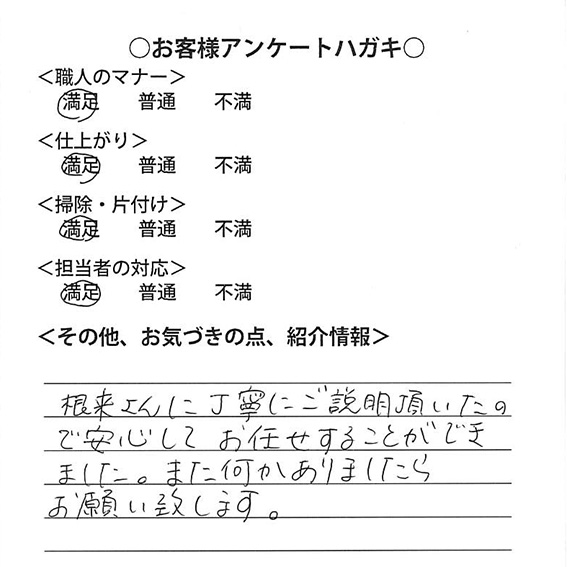 ○お客様アンケートハガキ○
＜職人のマナー＞
満足 普通 不満
＜仕上がり＞
満足 普通 不満
＜掃除・片付け＞
満足 普通 不満
＜担当者の対応＞
満足 普通 不満
＜その他、お気づきの点、紹介情報＞
根来さんに丁寧にご説明頂いたの
で安心して お任せすることができ
ました。また何かありましたら
お願い致します。